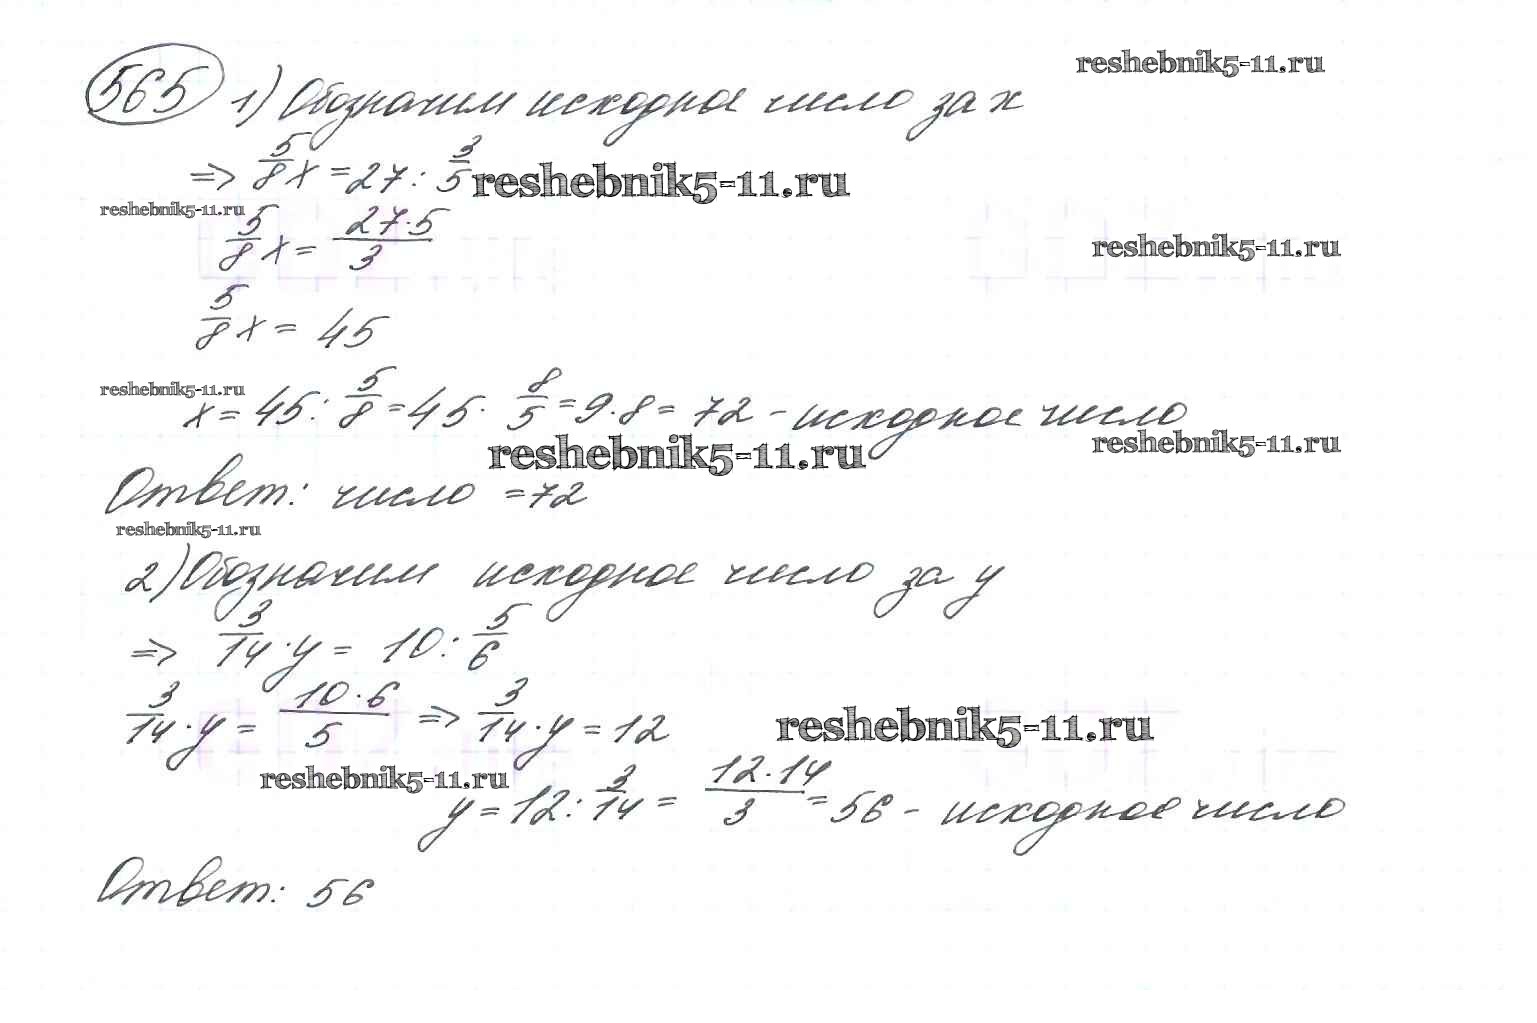 565 1) Обозначим исходное число за x
reshebnik5-11.ru
=> 5/8 x = 27 : 3/5
reshebnik5-11.ru
reshebnik5-11.ru
5/8 x = 27·5/3
reshebnik5-11.ru
5/8 x = 45
reshebnik5-11.ru
x = 45 : 5/8 = 45 · 8/5 = 9·8 = 72 - исходное число
reshebnik5-11.ru
reshebnik5-11.ru
Ответ: число = 72
reshebnik5-11.ru
2) Обозначим исходное число за y
=> 3/14 · y = 10 : 5/6
3/14 · y = 10·6/5 => 3/14 · y = 12
reshebnik5-11.ru
reshebnik5-11.ru
y = 12 : 3/14 = 12·14/3 = 56 - исходное число
Ответ: 56